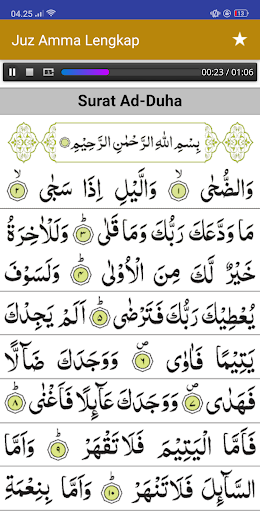 04.25
Juz Amma Lengkap
00:23 / 01:06
Surat Ad-Duha
بِسْمِ اللهِ الرَّحْمٰنِ الرَّحِيْمِ
وَالضُّحٰى ۙ ١ وَالَّيْلِ اِذَا سَجٰى ۙ ٢
مَا وَدَّعَكَ رَبُّكَ وَمَا قَلٰى ۗ ٣ وَلَلْاٰخِرَةُ
خَيْرٌ لَّكَ مِنَ الْاُوْلٰى ۗ ٤ وَلَسَوْفَ
يُعْطِيْكَ رَبُّكَ فَتَرْضٰى ۗ ٥ اَلَمْ يَجِدْكَ
يَتِيْمًا فَاٰوٰى ۖ ٦ وَوَجَدَكَ ضَاۤلًّا
فَهَدٰى ۖ ٧ وَوَجَدَكَ عَاۤىِٕلًا فَاَغْنٰى ۗ ٨
فَاَمَّا الْيَتِيْمَ فَلَا تَقْهَرْ ۗ ٩ وَاَمَّا
السَّاۤىِٕلَ فَلَا تَنْهَرْ ۗ ١٠ وَاَمَّا بِنِعْمَةِ